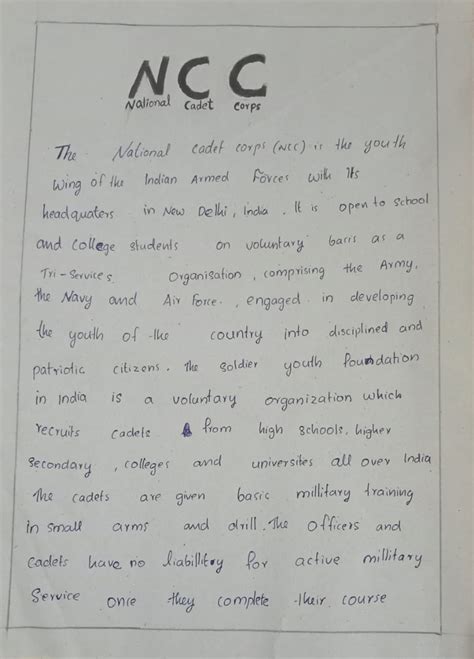 NCC
National Cadet Corps
The National cadet corps (NCC) is the youth
wing of the Indian Armed Forces with Its
headquaters in New Delhi, India. It is open to School
and College students on voluntary basis as a
Tri-Services Organisation, comprising the Army,
the Navy and Air Force., engaged in developing
the youth of the country into disciplined and
patriotic citizens. The Soldier youth foundation
in India is a voluntary organization which
recruits cadets from high schools, higher
secondary, colleges and universites all over India
The cadets are given basic millitary training
in small arms and drill. The officers and
cadets have no liabillitoy for active millitary
Service once they complete their course